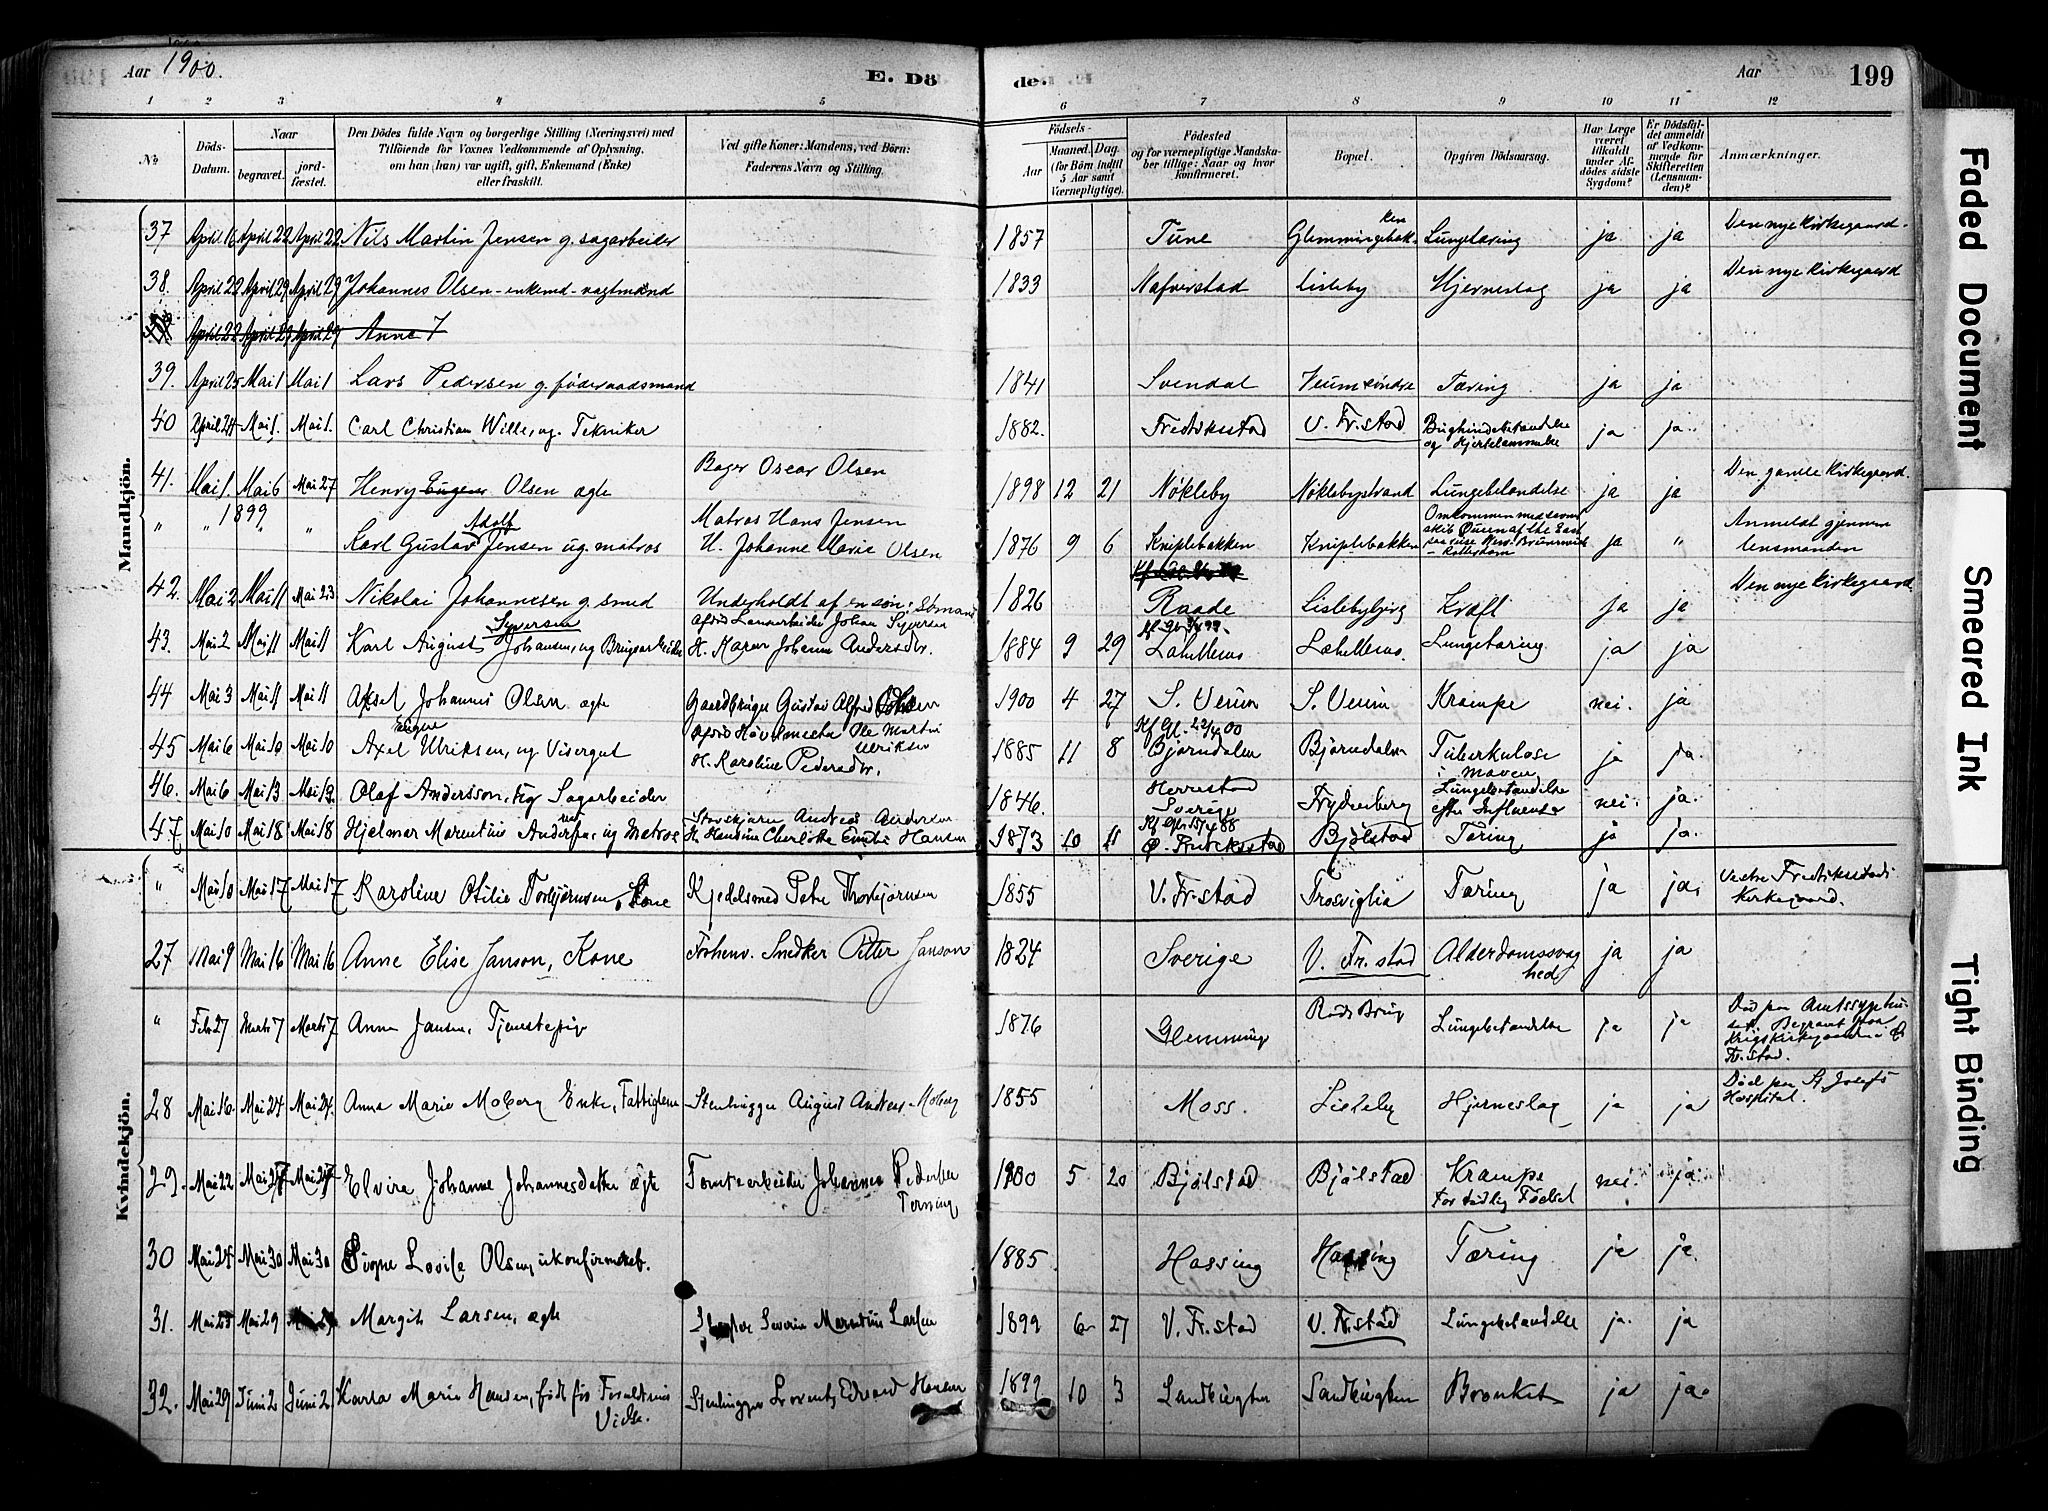 Aar 1900. E. Dö
de. Aar 199
1 2 3 4 5 6 7 8 9 10 11 12
No Döds-Datum. Naar begravet. jord-fæstet. Den Dödes fulde Navn og borgerlige Stilling (Næringsvei) med Tilföiende for Voxnes Vedkommende af Oplysning, om han (hun) var ugift, gift, Enkemand (Enke) eller fraskilt. Ved gifte Koner: Mandens, ved Börn: Faderens Navn og Stilling. Födsels- Aar Maaned. Dag. (for Börn indtil 5 Aar samt Værnepligtige). Födested og for værnepligtige Mandskaber tillige: Naar og hvor konfirmeret. Bopæl. Opgiven Dödsaarsag. Har Læge været tilkaldt under Afdödes sidste Sygdom? Er Dödsfaldet anmeldt af Vedkommende for Skifteretten (Lensmanden)? Anmærkninger.
Mandkjön.
37 April 16 April 22 April 22 Nils Martin Jensen g. sagarbeider 1857 Tune Glemmingebakken Lungetæring ja ja Den nye kirkegaard.
38. April 22 April 29 April 29 Johannes Olsen - enkemd - vagtmand 1833 Nafverstad Lisleby Hjerneslag ja ja Den nye kirkegaard
April 22 April 29 April 29 Anne
39. April 25 Mai 1 Mai 1 Lars Pedersen g. föderaadsmand 1841 Svendal Veum søndre Tæring ja ja
40 April 24 Mai 1. Mai 1. Carl Christian Wille, ug. Tekniker 1882. Fredriksstad V. Fr.stad Bughindebetændelse og Hjertelammelse ja ja
41. Mai 1. Mai 6 Mai 27 Henry Eugen Olsen ægte Bager Oscar Olsen 1898 12 21 Nøkleby Nøklebystrand Lungebetændelse ja ja Den gamle kirkegaard.
" " 1899 " " Karl Gustav Adolf Jensen ug. matros Matros Hans Jensen
H. Johanne Marie Olsen 1876 9 6 Kniplebakken Kniplebakken Omkommen med skib Queen of the East New Brunswick - Rotterdam ja " Anmeldt gjennem lensmanden
42. Mai 2 Mai 11 Mai 23 Nikolai Johannesen g. smed Underholdt af en søn: Sømand 1826 Raade Lislebybjerg Kræft ja ja Den nye kirkegaard
43. Mai 2 Mai 11 Mai 11 Karl August Syversen Johansen, ug Brugsarbeider Johan Syversen
H. Karen Johanne Andersdtr. 1884 9 29 Lahellemo Lahellemo. Lungetæring. ja ja
44 Mai 3 Mai 11 Mai 11 Aksel Johannes Olsen ægte Gaardbruger Gustav Alfred 1900 4 27 S. Veum S. Veum Krampe nei. ja
45 Mai 6 Mai 10 Mai 10 Axel Ulriksen, ug Visergut Ole Martin Ulriksen
H. Karoline Pedersdtr. Kf. Gl. 22/4 00 1885 11 8 Bjørndalen Bjørndalen Tuberkulose i maven ja ja.
46. Mai 6 Mai 13 Mai 13 Olaf Andersson, ug Sagarbeider 1846. Herrestad Sverige Frydenberg Lungebetændelse efter Influenza nei. ja.
47 Mai 10 Mai 18 Mai 18 Hjelmar Marentius Andersen, ug Matros Andreas Andersen
H. Charlotte Emilie Hansen 1873 10 11 Ø. Fredriksstad Bjølstad Tæring ja ja.
Kvindekjön.
" Mai 10 Mai 17 Mai 17 Karoline Otilie Torbjørnsen, Kone Kjedelsmed Peter Thorbjørnsen 1855 V. Fr.stad Trosviglia Tæring ja ja. Vestre Fredriksstads Kirkegaard.
27 Mai 9 Mai 16 Mai 16 Anne Elise Janson, Kone Forhenv. Snedker Petter Janson 1824 Sverige V. Fr.stad Alderdomssvaghed ja ja
" Febr 27 Marts 7 Marts 7 Anna Jansen, Tjenestepige 1876 Glemminge Røds Brug Lungebetændelse ja ja Død paa Amtssygehuset. Begravet paa Krigskirkegaarden Ø. Fr.stad.
28 Mai 16. Mai 24 Mai 24. Anna Marie Moberg Enke, Fattiglem Stenhugger August Andreas Moberg 1855 Moss. Lisleby Hjerneslag ja ja Død paa St. Josefs Hospital.
29. Mai 22 Mai 27 Mai 27 Elvire Johanne Johannesdatter ægte Tomtearbeider Johannes Pedersen Terning 1900 5 20 Bjølstad Bjølstad Krampe For tidlig Fødsel nei. ja.
30 Mai 24 Mai 30 Mai 30 Signe Lovise Olsen, ukonfirmeret. 1885. Hassing Hassing Tæring ja ja.
31. Mai 25 Mai 29 Mai 29 Margit Larsen, ægte Severin Marentius Larsen 1899 6 27 V. Fr.stad V. Fr.stad Lungebetændelse ja. ja
32. Mai 29 Juni 2 Juni 2 Karla Marie Hansen, født før Forældrenes Vielse. Stenhugger Lorentz Edvard Hansen 1899 10 3 Sandbugten Sandbugten Bronkit ja ja.
Faded Document
Smeared Ink
Tight Binding